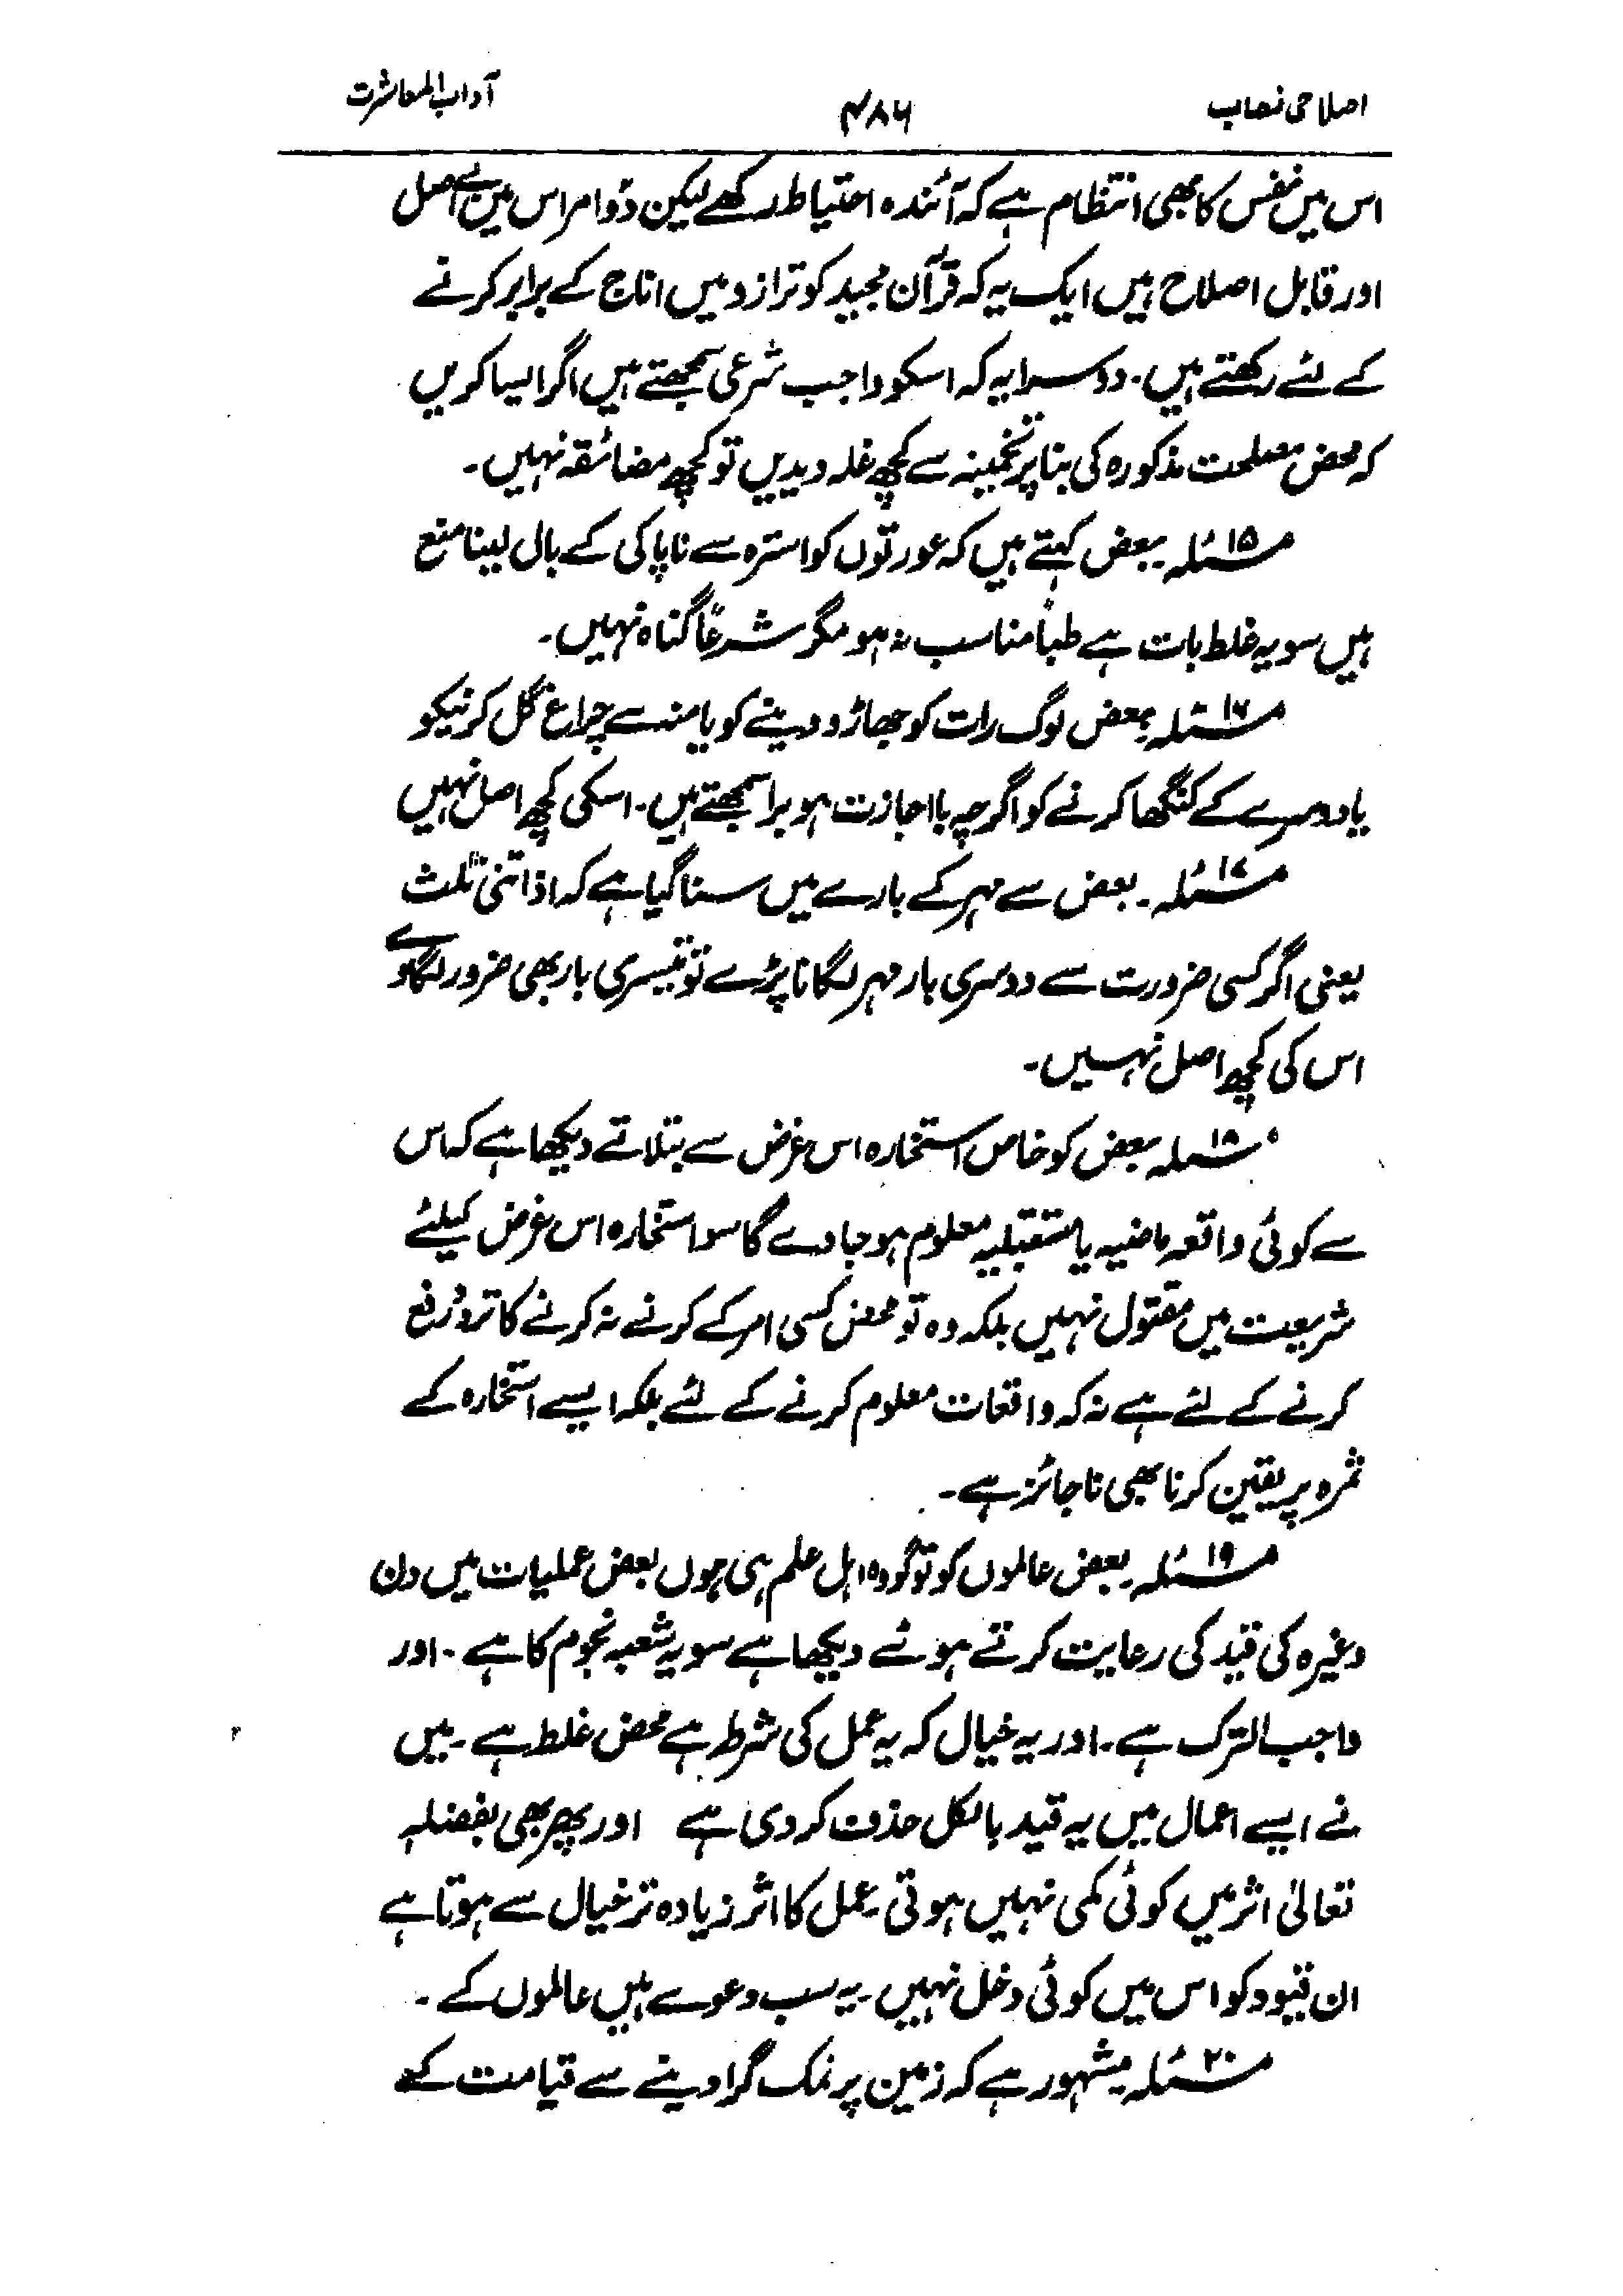 اصلاحی نصاب
۴۸۶
آداب المعاشرت
اس میں نفس کا بھی انتظام ہے کہ آئندہ احتیاط رکھے لیکن دو امر اس میں بے اصل
اور قابل اصلاح ہیں ایک یہ کہ قرآن مجید کو ترازو میں اناج کے برابر کرنے
کے لئے رکھتے ہیں۔ دوسرا یہ کہ اسکو واجب شرعی سمجھتے ہیں اگر ایسا کریں
کہ محض مصلحت مذکورہ کی بنا پر تخمینہ سے کچھ غلہ دیدیں تو کچھ مضائقہ نہیں۔
مسئلہ ۱۵۔ بعض کہتے ہیں کہ عورتوں کو استرہ سے ناپاکی کے بال لینا منع
ہیں سو یہ غلط بات ہے طباً مناسب نہ ہو مگر شرعاً گناہ نہیں۔
مسئلہ ۱۶۔ بعض لوگ رات کو جھاڑو دینے کو یا منہ سے چراغ گل کرنیکو
یا دوسرے کے کنگھا کرنے کو اگرچہ بااجازت ہو برا سمجھتے ہیں۔ اسکی کچھ اصل نہیں
مسئلہ ۱۷۔ بعض سے مہر کے بارے میں سنا گیا ہے کہ اذا تنی ثلث
یعنی اگر کسی ضرورت سے دوسری بار مہر لگانا پڑے تو تیسری بار بھی ضرور لگاوے
اس کی کچھ اصل نہیں۔
مسئلہ ۱۸۔ بعض کو خاص استخارہ اس غرض سے بتلاتے دیکھا ہے کہ اس
سے کوئی واقعہ ماضیہ یا مستقبلیہ معلوم ہو جاوے گا سو استخارہ اس غرض کیلئے
شریعت میں مقتول نہیں بلکہ وہ تو محض کسی امر کے کرنے نہ کرنے کا تردد رفع
کرنے کے لئے ہے نہ کہ واقعات معلوم کرنے کے لئے بلکہ ایسے استخارہ کے
ثمرہ پر یقین کرنا بھی ناجائز ہے۔
مسئلہ ۱۹۔ بعض عالموں کو تو گو وہ اہل علم ہی ہوں بعض عملیات میں دن
وغیرہ کی قید کی رعایت کرتے ہوئے دیکھا ہے سو یہ شعبہ نجوم کا ہے۔ اور
واجب الترک ہے۔ اور یہ خیال کہ یہ عمل کی شرط ہے محض غلط ہے۔ میں
نے ایسے اعمال میں یہ قید بالکل حذف کر دی ہے اور پھر بھی بفضلہ
تعالیٰ اثر میں کوئی کمی نہیں ہوتی۔ عمل کا اثر زیادہ تر خیال سے ہوتا ہے
ان قیود کو اس میں کوئی دخل نہیں۔ یہ سب دعوے ہیں عالموں کے۔
مسئلہ ۲۰۔ مشہور ہے کہ زمین پر نمک گرا دینے سے قیامت کے